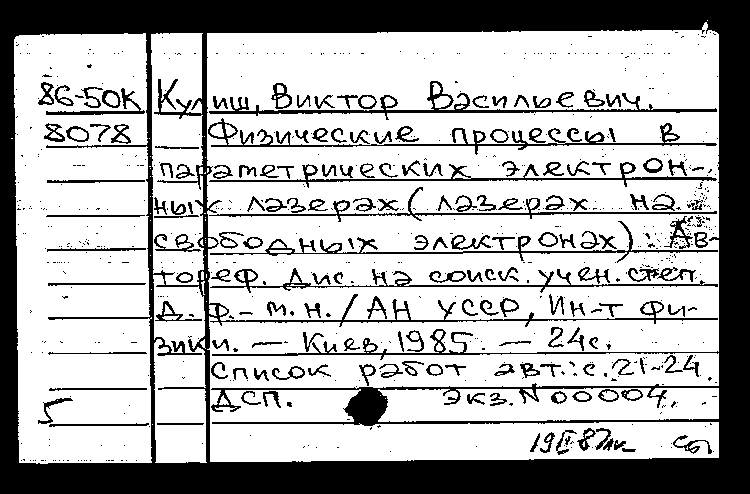 86-50К Кулиш, Виктор Васильевич.
8078 Физические процессы в
параметрических электрон-
ных лазерах (лазерах на
свободных электронах): Ав-
тореф. дис. на соиск. учен. степ.
д. ф.-м. н. / АН УССР, Ин-т фи-
зики. — Киев, 1985. — 24с.
Список работ авт.: с. 21-24.
5 ДСП. Экз. N 00004.